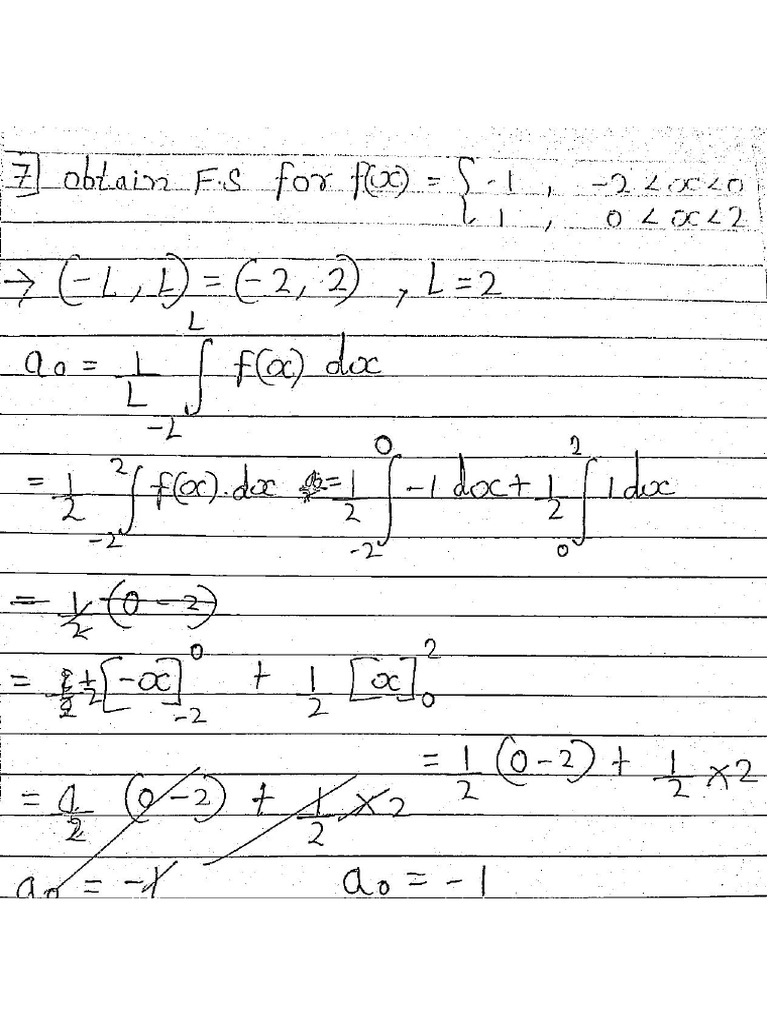 7] obtain F.S for f(x) = { -1 , -2 < x < 0
{ 1 , 0 < x < 2
→ (-L, L) = (-2, 2) , L = 2
a₀ = 1/L ∫_{-L}^{L} f(x) dx
= 1/2 ∫_{-2}^{2} f(x).dx = 1/2 ∫_{-2}^{0} -1 dx + 1/2 ∫_{0}^{2} 1 dx
= 1/2 (0 - 2)
= 1/2 [-x]_{-2}^{0} + 1/2 [x]_{0}^{2}
= 1/2 (0-2) + 1/2 × 2
= 1/2 (0-2) + 1/2 × 2
a₀ = -1
a₀ = -1